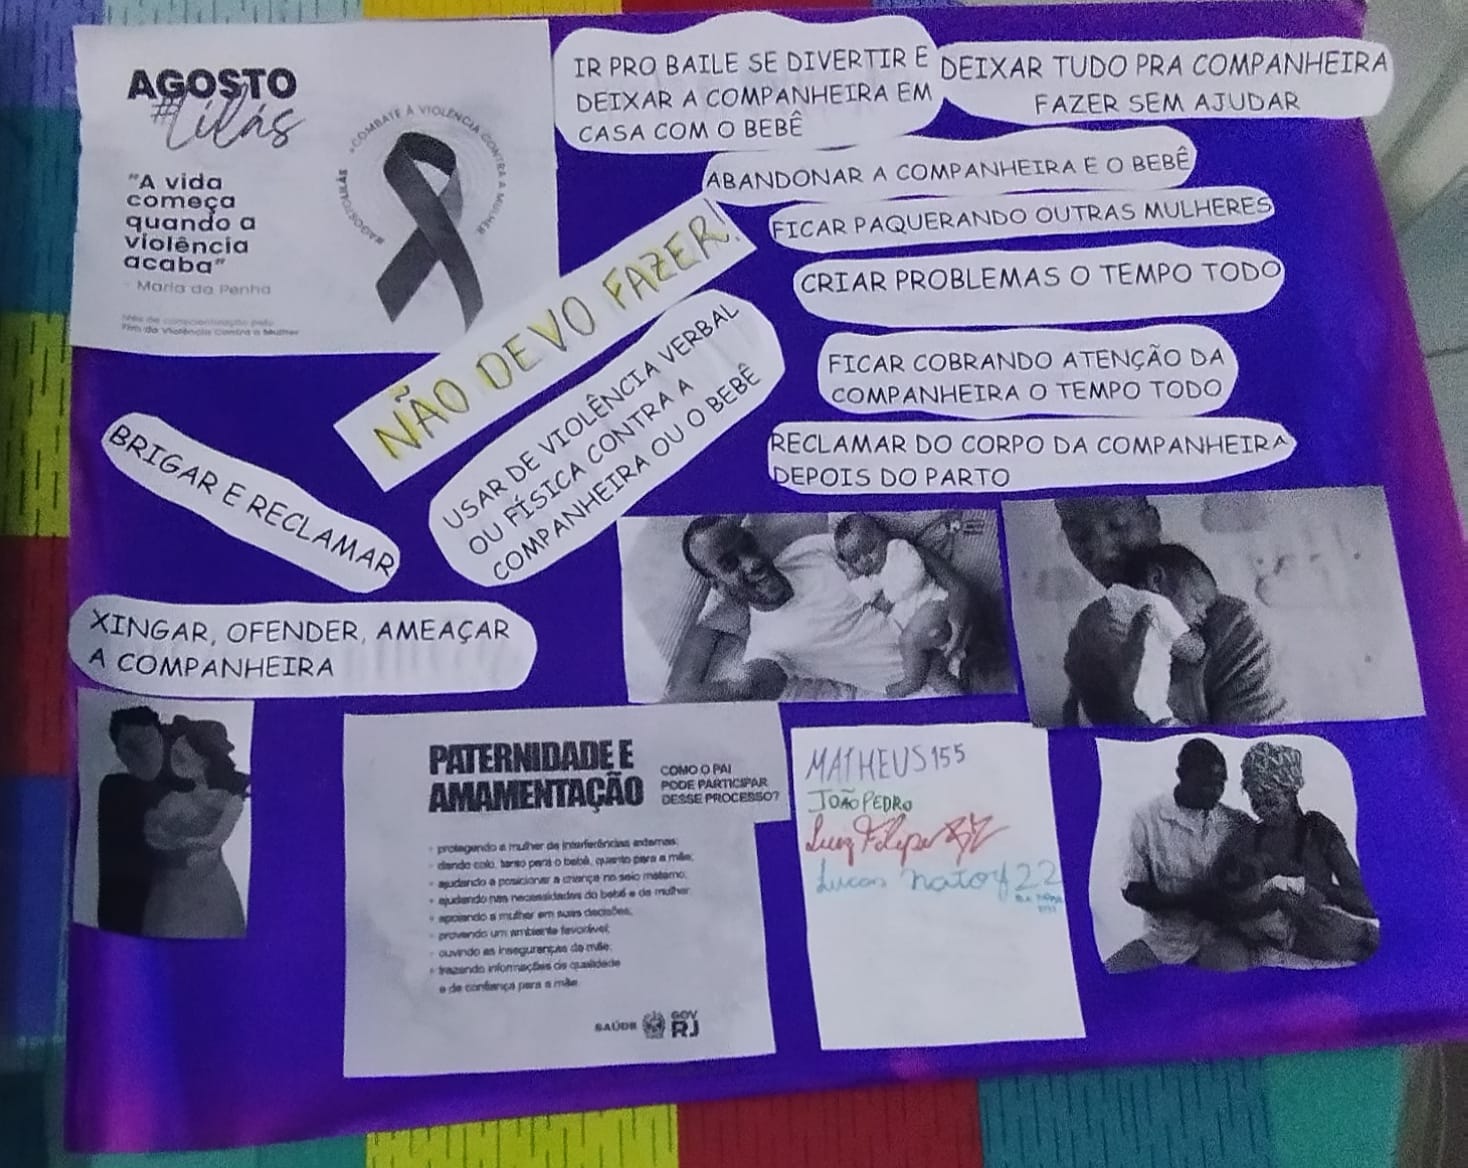 AGOSTO
#lilás
"A vida
começa
quando a
violência
acaba"
- Maria da Penha
Mês de conscientização pelo
Fim da Violência Contra a Mulher
#AGOSTOLILÁS #COMBATE À VIOLÊNCIA CONTRA A MULHER
IR PRO BAILE SE DIVERTIR E
DEIXAR A COMPANHEIRA EM
CASA COM O BEBÊ
DEIXAR TUDO PRA COMPANHEIRA
FAZER SEM AJUDAR
ABANDONAR A COMPANHEIRA E O BEBÊ
FICAR PAQUERANDO OUTRAS MULHERES
CRIAR PROBLEMAS O TEMPO TODO
NÃO DEVO FAZER!
USAR DE VIOLÊNCIA VERBAL
OU FÍSICA CONTRA A
COMPANHEIRA OU O BEBÊ
FICAR COBRANDO ATENÇÃO DA
COMPANHEIRA O TEMPO TODO
RECLAMAR DO CORPO DA COMPANHEIRA
DEPOIS DO PARTO
BRIGAR E RECLAMAR
XINGAR, OFENDER, AMEAÇAR
A COMPANHEIRA
PATERNIDADE E
AMAMENTAÇÃO
COMO O PAI
PODE PARTICIPAR
DESSE PROCESSO?
- protegendo a mulher de interferências externas;
- dando colo, tanto para o bebê, quanto para a mãe;
- ajudando a posicionar a criança no seio materno;
- ajudando nas necessidades do bebê e da mulher
- apoiando a mulher em suas decisões;
- provendo um ambiente favorável;
- ouvindo as inseguranças da mãe;
- trazendo informações de qualidade
e de confiança para a mãe.
SAÚDE
GOV
RJ
MATHEUS 155
JOÃO PEDRO
Luiz Felipe
Lucas 22